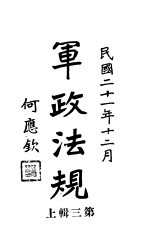 民國二十一年十二月
軍政法規
何應欽
第三輯上